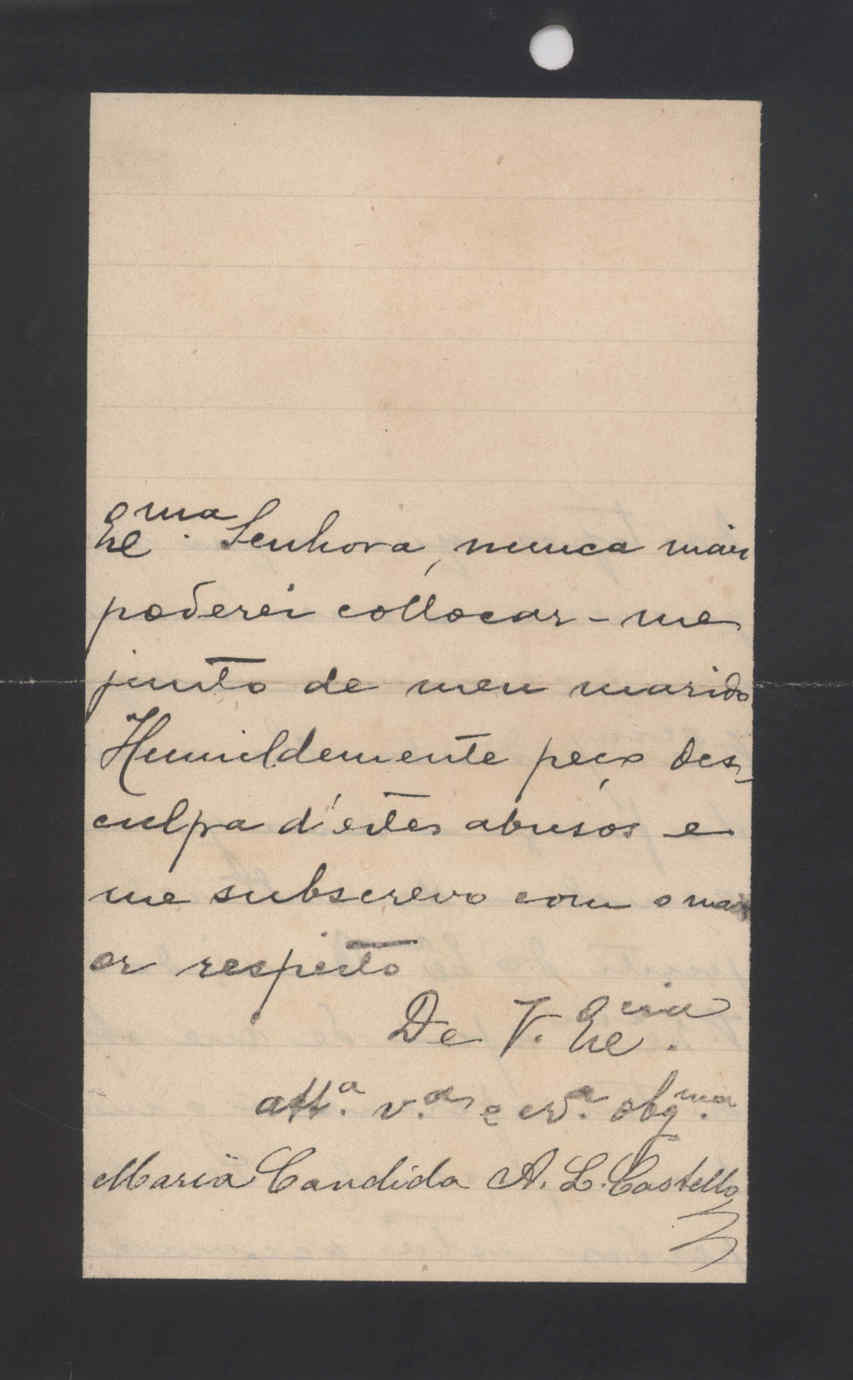 Exc.ma Senhora, nunca mais
poderei collocar-me
junto de meu marido
Humildemente peço des-
culpa d'estes abusos e
me subscrevo com o mai
or respeito
De V. Exc.cia
att.a v.a e cr.a obg.ma
Maria Candida A. L. Castello